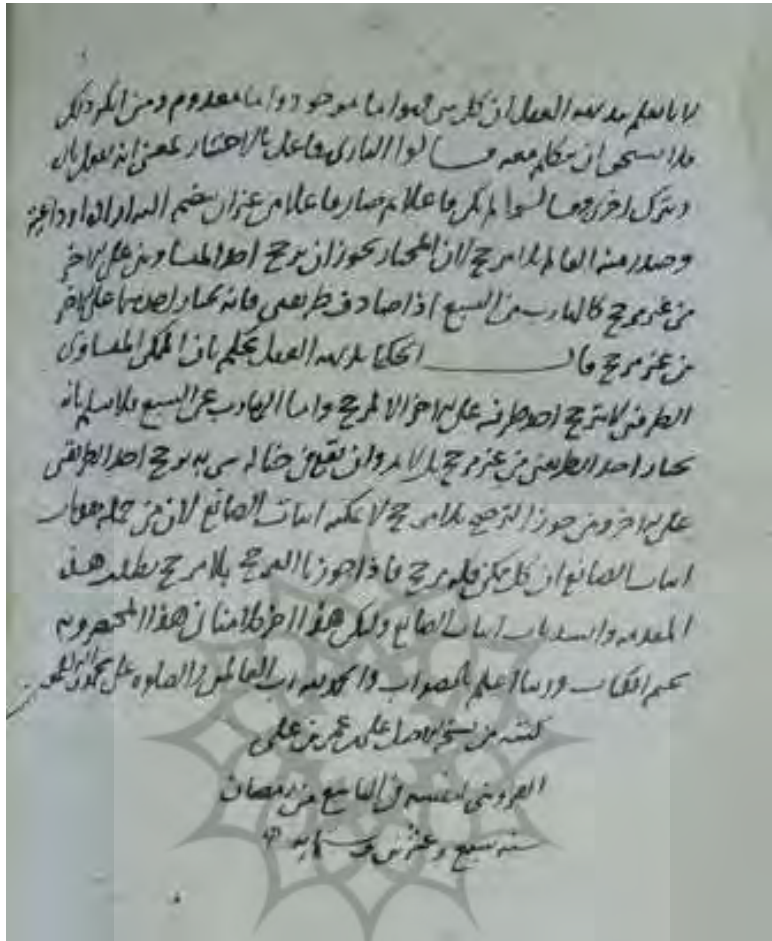 لانا نعلم بديهة العقل ان كل شي فهو اما موجود واما معدوم ومن انكر ذلك
فلا يستحق ان يتكلم معه قالوا الباري فاعل بالاختيار بمعنى انه يفعل تارة
ويترك اخرى وقالوا لم يكن فاعلا ثم صار فاعلا من غير ان ينضم اليه ارادة او داعية
وصدر منه العالم بلا مرجح لان المختار يجوز ان يرجح احد المتساويين على الاخر
من غير مرجح كالهارب من السبع اذا صادف طريقين فانه يختار احدهما على الاخر
من غير مرجح قالت الحكما بديهة العقل تحكم بان الممكن المتساوي
الطرفين لا يترجح احد طرفيه على الاخر الا لمرجح واما الهارب عن السبع فلا نسلم بانه
يختار احد الطريقين من غير مرجح بل لا بد وان يقع في خياله شي به يرجح احد الطريقين
على الاخر ومن جوز الترجيح بلا مرجح لا يمكنه اثبات الصانع لان من جملة مقدمات
اثبات الصانع ان كل ممكن فله مرجح فاذا جوزنا الترجيح بلا مرجح بطلت هذه
المقدمة وانسد باب اثبات الصانع وليكن هذا اخر كلامنا في هذا المختصر وبه
نختم الكتاب وربنا اعلم بالصواب والحمد لله رب العالمين والصلوة على محمد
كتبه من نسخة الاصل على بن عمر بن على
القزويني لنفسه في التاسع من رمضان
سنه سبع وعشرين وستمايه